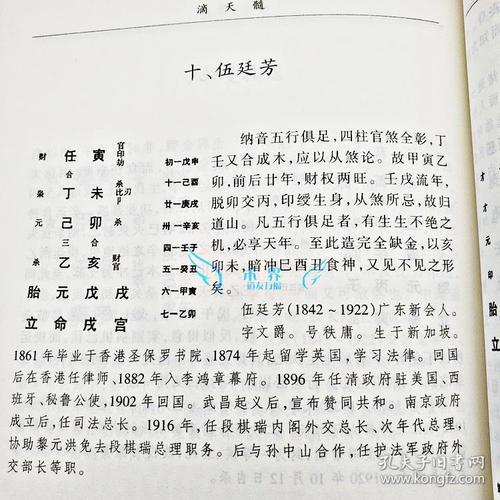 滴天髓
十、伍廷芳
财 任 寅 官印劫
合
枭 丁 未 杀比刃
元 己 卯 杀
三 合
杀 乙 亥 财官
胎 元 戊 戌
立 命 戌 宫
初一戊申
十二己酉
廿一庚戌
卅一辛亥
四一壬子
五一癸丑
六一甲寅
七一乙卯
纳音五行俱足，四柱官煞全彰，丁
壬又合成木，应以从煞论。故甲寅乙
卯，前后廿年，财权两旺。壬戌流年，
脱卯交丙，印绶生身，从煞所忌，故归
道山。凡五行俱足者，有生生不绝之
机，必享天年。至此造完全缺金，以亥
卯未，暗冲巳酉丑食神，又见不见之形
矣。
伍廷芳（1842～1922）广东新会人。
字文爵。号秩庸。生于新加坡。
1861年毕业于香港圣保罗书院、1874年起留学英国，学习法律。回国
后在香港任律师、1882年入李鸿章幕府。1896年任清政府驻美国、西
班牙、秘鲁公使，1902年回国。武昌起义后，宣布赞同共和。南京政府
成立后，任司法总长。1916年，任段棋瑞内阁外交总长、次年代总理，
协助黎元洪免去段棋瑞总理职务。后与孙中山合作，任护法军政府外
交部长等职。
孔夫子旧书网